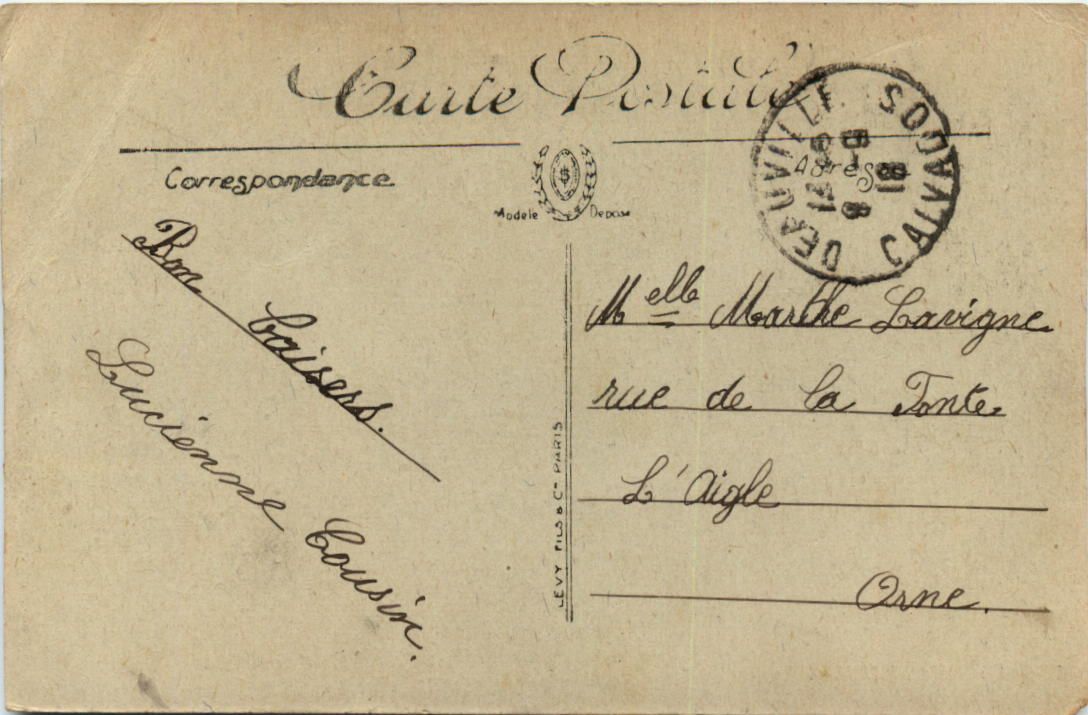 Carte Postale
Correspondance
Modèle Déposé
Adresse
DEAUVILLE CALVADOS
Bons baisers.
Lucienne Cousin.
LEVY FILS & Cie PARIS
Melle Marthe Lavigne
rue de la Fonte
L'Aigle
Orne.